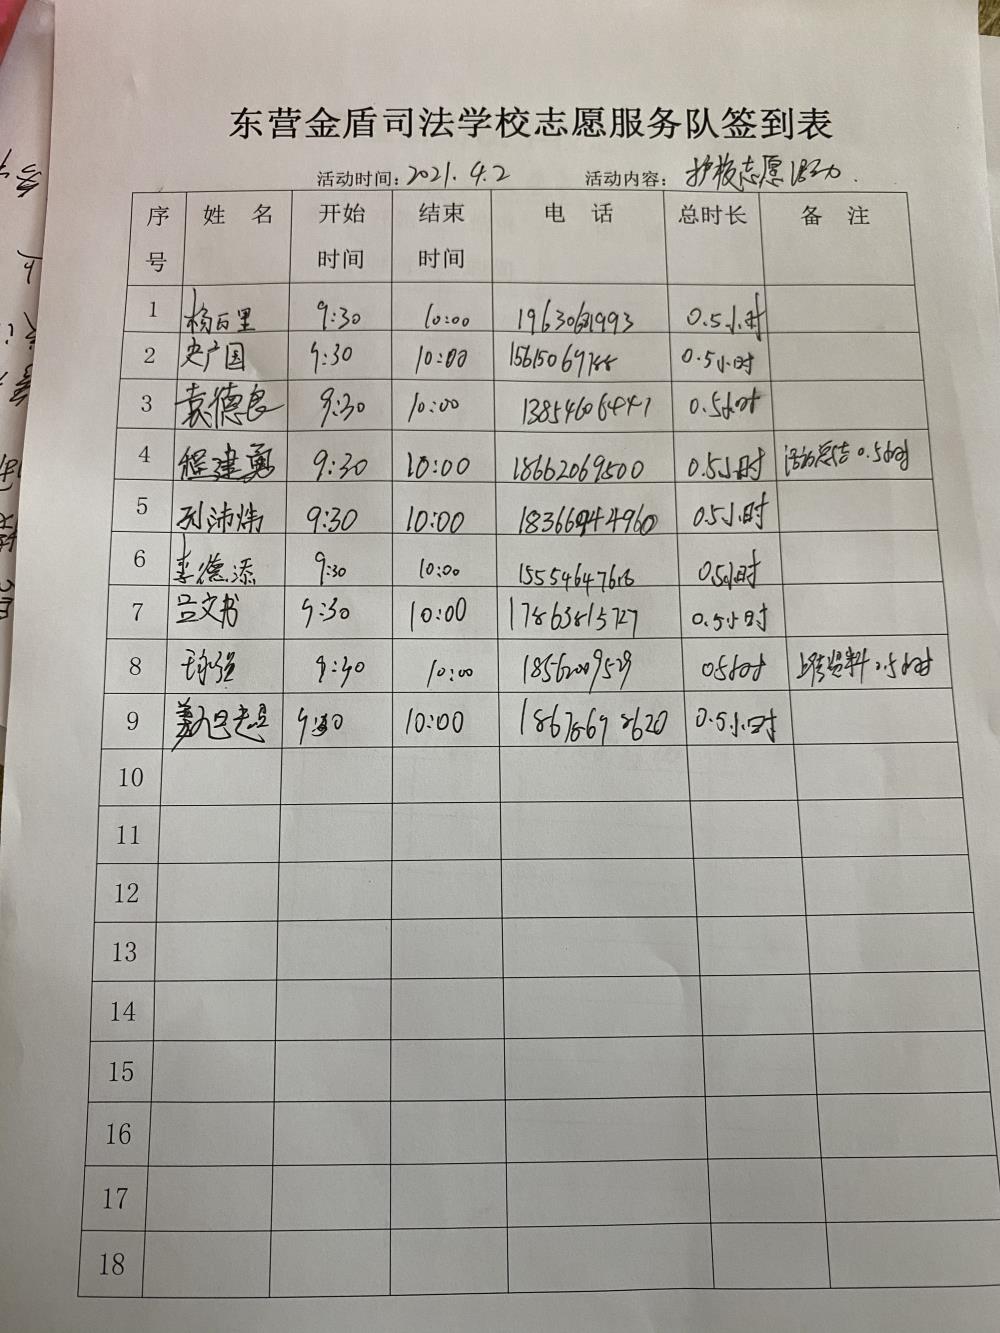 东营金盾司法学校志愿服务队签到表
活动时间: 2021.4.2 活动内容: 护校志愿活动.
序号 姓名 开始时间 结束时间 电话 总时长 备注
1 杨百里 9:30 10:00 0.5小时
2 史广国 9:30 10:00 0.5小时
3 袁德良 9:30 10:00 13854606441 0.5小时
4 程建勇 9:30 10:00 18662069500 0.5小时 活动总结0.5小时
5 孙沛炜 9:30 10:00 0.5小时
6 李德添 9:30 10:00 15554647616 0.5小时
7 吕文书 9:30 10:00 17863815727 0.5小时
8 9:30 10:00 18562009529 0.5小时 上传资料0.5小时
9 9:30 10:00 18678698620 0.5小时
10
11
12
13
14
15
16
17
18